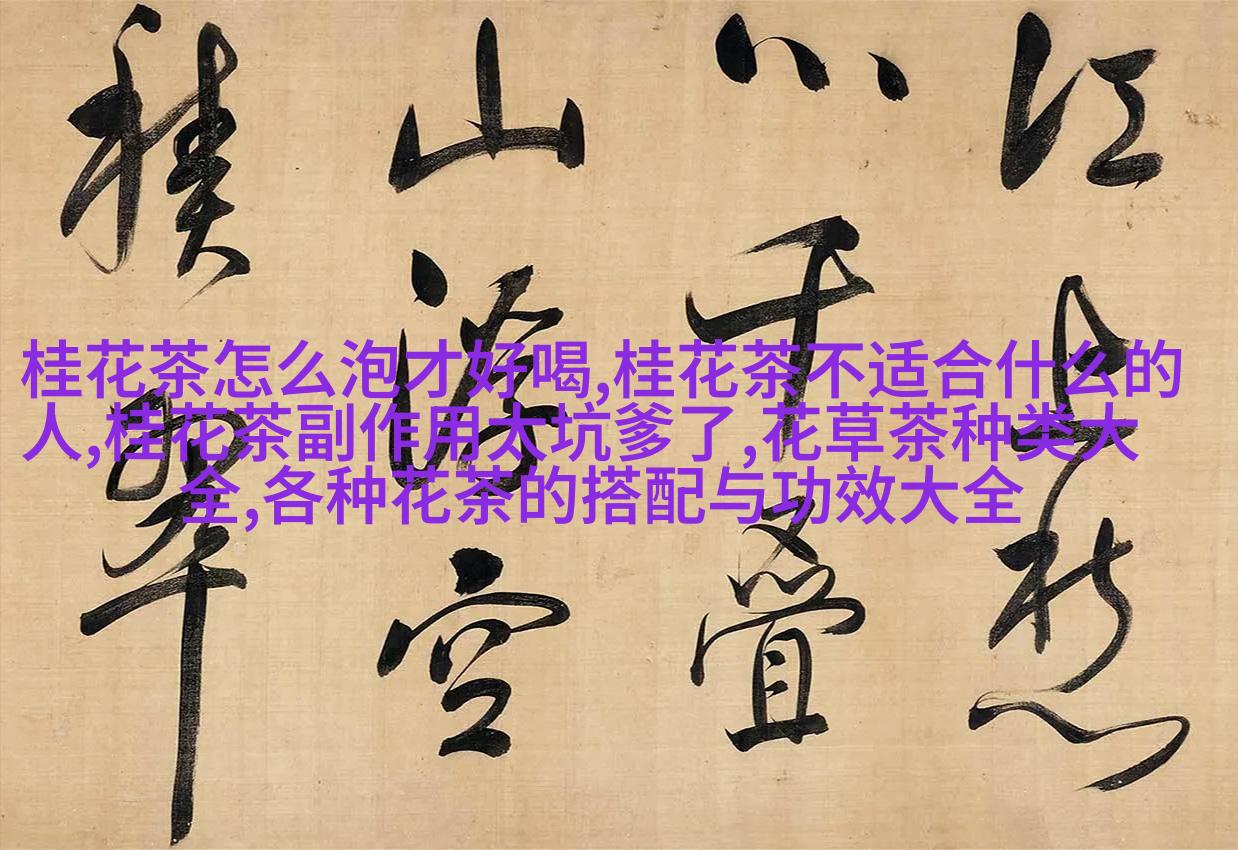 桂花茶怎么泡才好喝,桂花茶不适合什么的
人,桂花茶副作用太坑爹了,花草茶种类大
全,各种花茶的搭配与功效大全
江上愁
心千疊
山浮空
積翠